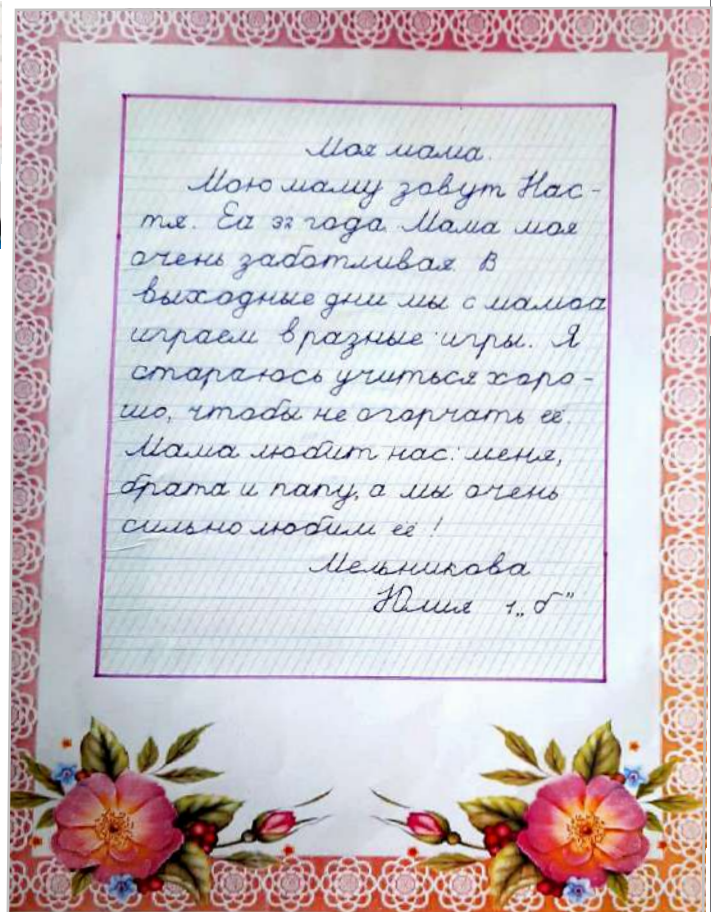 Моя мама.
Мою маму зовут Нас-
тя. Ей 32 года. Мама моя
очень заботливая. В
выходные дни мы с мамой
играем в разные игры. Я
стараюсь учиться хоро-
шо, чтобы не огорчать её.
Мама любит нас: меня,
брата и папу, а мы очень
сильно любим её!
Мельникова
Юлия 1„б"